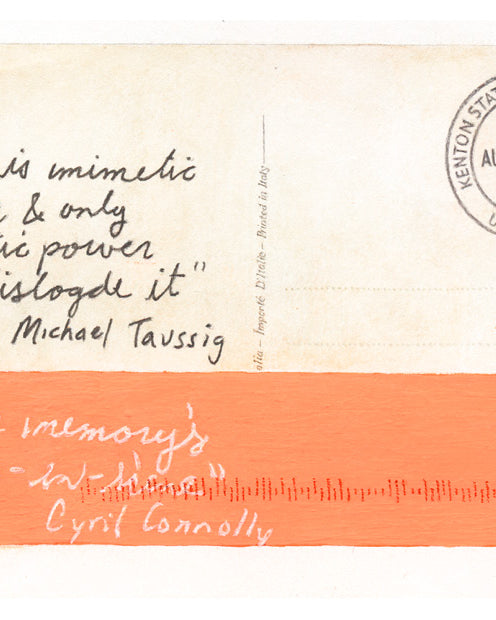 is mimetic
& only
ic power
islogde it"
Michael Taussig
alia – Importé D'Italie – Printed in Italy
KENTON STAT
memory's
Cyril Connolly